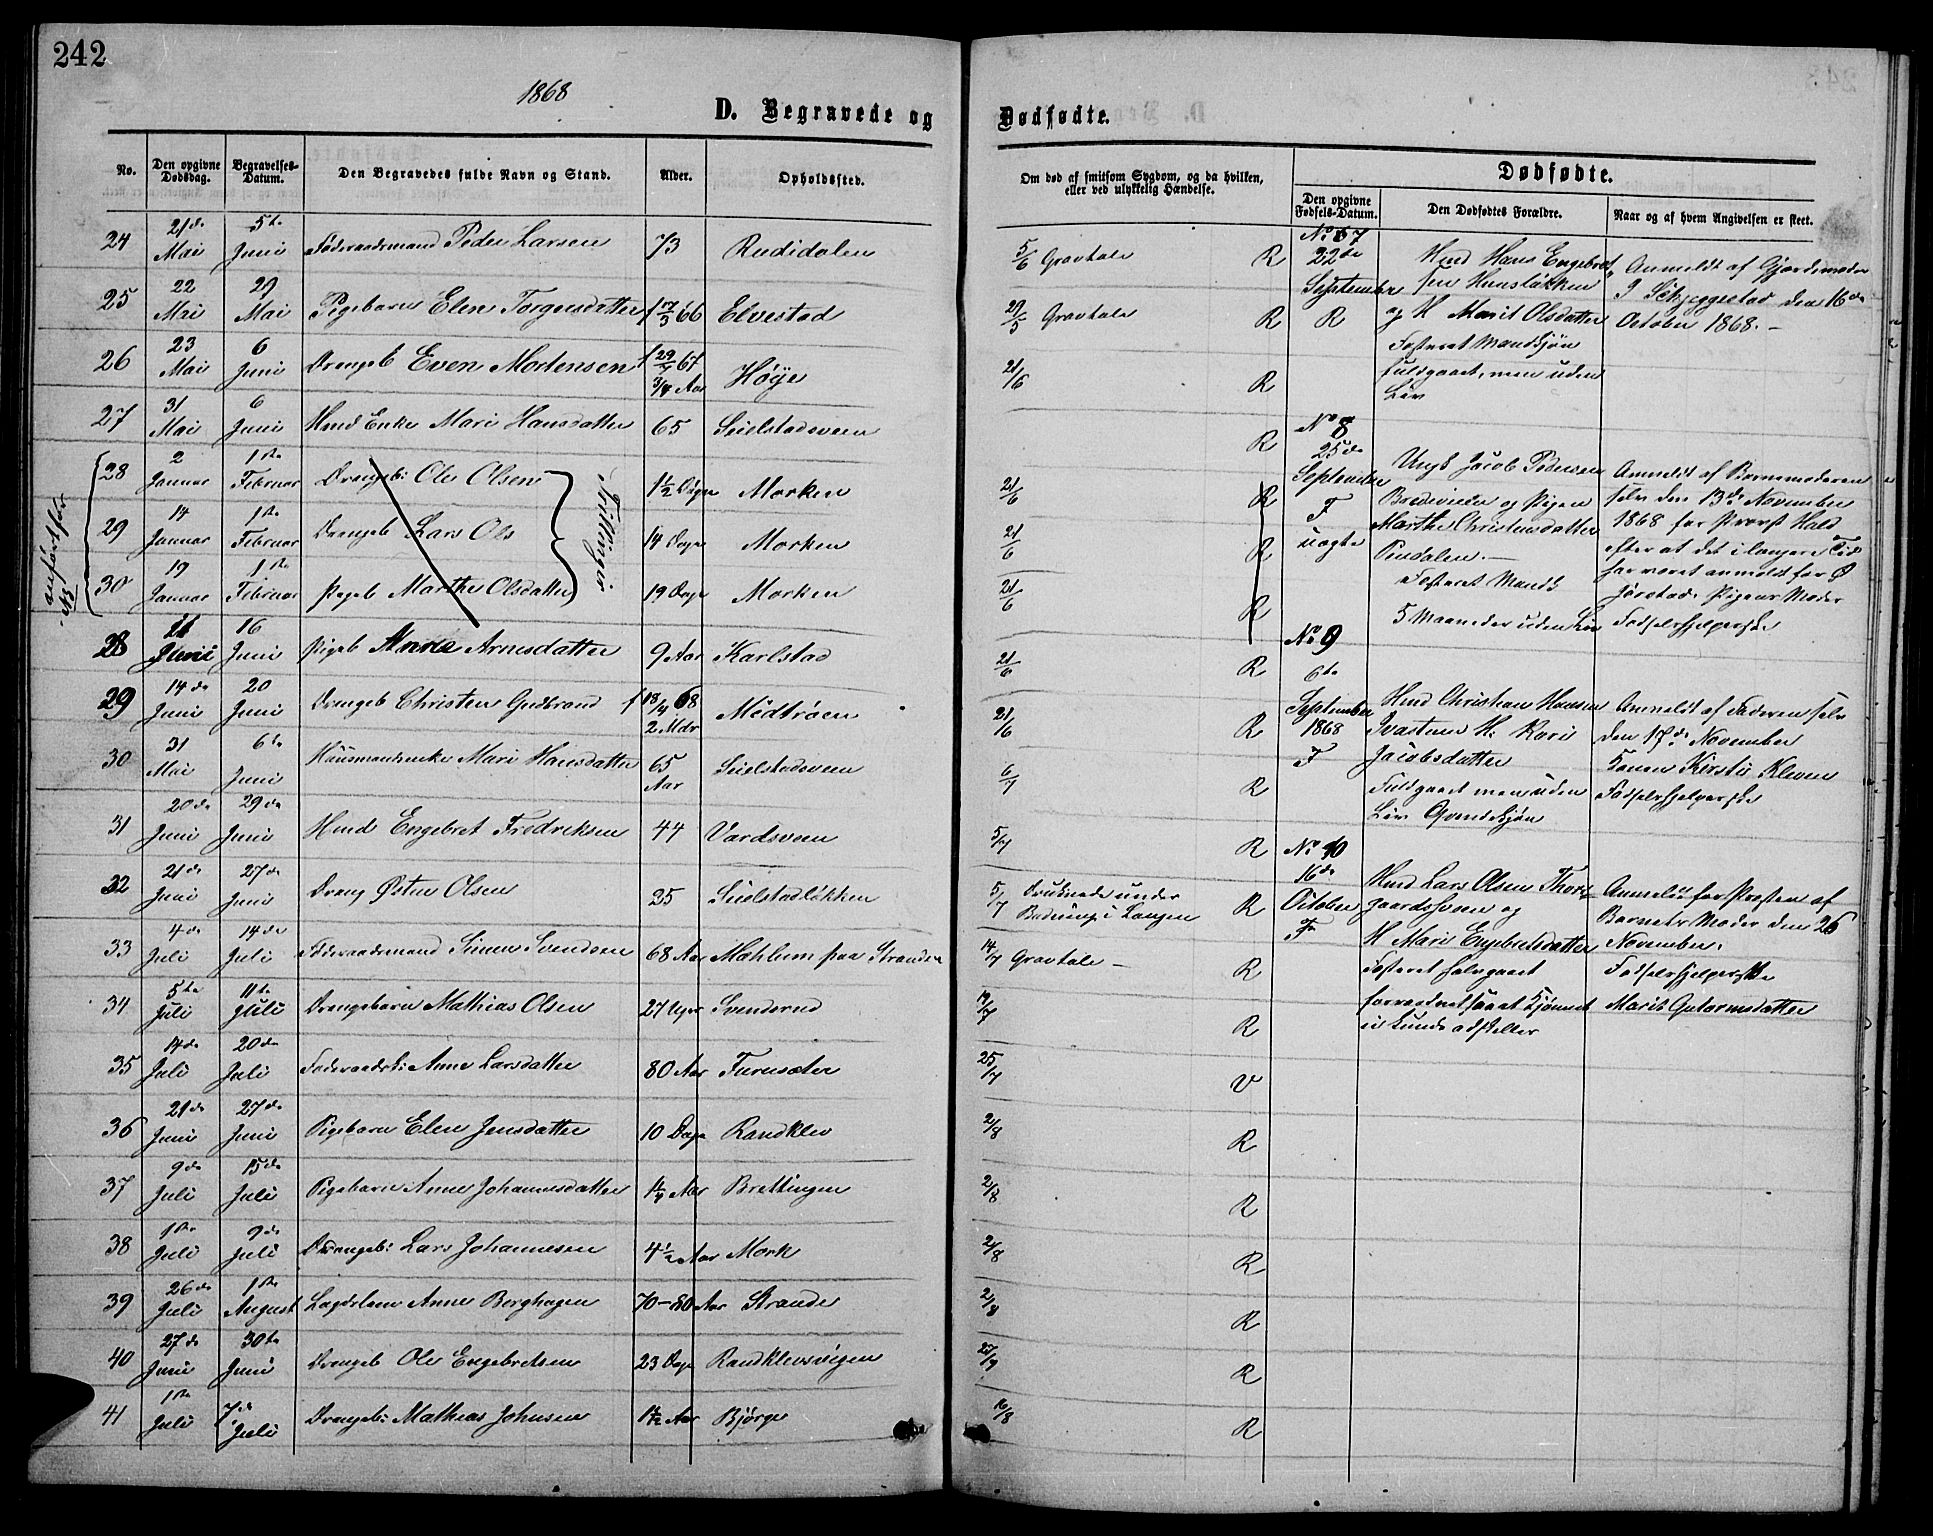 242
1868
D. Begravede og
Dødfødte.
No.
Den opgivne Dødsdag.
Begravelses-Datum.
Den Begravedes fulde Navn og Stand.
Alder.
Opholdssted.
Om død af smitsom Sygdom, og da hvilken,
eller ved ulykkelig Hændelse.
Dødfødte.
Den opgivne Fødsels-Datum.
Den Dødfødtes Forældre.
Naar og af hvem Angivelsen er skeet.
24 21de Mai 5te Juni Føderaadsmand Peder Larsen 73 Rudidalen 5/6 Gravtale R
25 22 Mai 29 Mai Pigebarn Elen Torgersdatter f 17/3 66 Elvestad 29/5 Gravtale R
26 23 Mai 6 Juni Drengeb Even Mortensen 3/4 Aar Høye 21/6 R
27 31 Mai 6 Juni Hmd Enke Mari Hansdatter 65 Seielstadsveen R
28 2 Januar 1ste Februar Drengeb: Ole Olsen 1½ Døgn Morken 21/6 R
29 14 Januar 1ste Februar Drengeb Lars Ols 14 Dage Morken 21/6 R
30 19 Januar 1ste Februar Pigeb Marthe Olsdatter 19 Dage Morken 21/6 R
Trillinger
anført før
28 11 Juni 16 Juni Pigeb Anne Arnesdatter 9 Aar Karlstad 21/6 R
29 14de Juni 20 Juni Drengeb Christen Gudbrand f 18/4 68 2 Mdr Midtrøen 21/6 R
30 31 Mai 6te Juni Huusmandsenke Mari Hansdatter 65 Aar Seielstadsveen 6/7 R
31 20de Juni 29de Juni Hmd Engebret Fredriksen 44 Vardsveen 5/7 R
32 21de Juni 27de Juni Dreng Østen Olsen 25 Seielstadløkken 5/7 Druknede under Badning i Laagen R
33 4de Juli 14de Juli Føderaadsmand Simen Svendsen 68 Aar Mæhlum paa Stranden 14/7 Gravtale – R
34 5te Juli 11te Juli Drengebarn Mathias Olsen 27 Uger Svenderud 19/7 R
35 14de Juli 20de Juli Føderaadsk: Anne Larsdatter 80 Aar Furusæter 25/7 V
36 21de Juni 27de Juni Pigebarn Elen Jensdatter 10 Dage Randklev 2/8 R
37 9de Juli 15de Juli Pigebarn Anne Johannesdatter 1¼ Aar Brettingen 2/8 R
38 1ste Juli 9de Juli Drengeb: Lars Johannesen 4½ Aar Mork 2/8 R
39 26de Juli 1ste August Lægdslem Anne Berghagen 70–80 Aar Strande 2/8 R
40 27de Juni 30te Juni Drengeb Ole Engebretsen 23 Dage Randklevsvigen R
41 1ste Juli 7de Juli Drengeb: Mathias Johnsen 1½ Aar Bjørge 16/8 R
No 7
22de
September
R
Hmd Hans Engebret
sen Hunsløkken
og H Marit Olsdatter
Fosteret Mandkjøn
fuldgaaet, men uden
Liv
Anmeldt af Gjordemoder
J Schjeggestad den 16de
October 1868. –
No 8
25de
September
F
uægte
Ungk Jacob Pedersen
Bredevielen og Pigen
Marthe Christensdatter
Fosteret Mandk
5 Maaneder uden Liv
Anmeldt af Barnemoderen
selv den 13de November
1868 for Provst Hald
efter at det i længere Tid
har været anmeldt for
Jørstad. Pigens Moder
Fødselshjelperske
No 9
6te
September
1868
F
Hmd Christian Hansen
H. Kari
Jacobsdatter
Fuldgaaet men uden
Liv Qvindekjøn
Anmeldt af Faderen selv
den 17de November
Konen Kirsti Kleven
Fødselshjelperske
No 10
16de
October
F
Hmd Lars Olsen Thors
gaardssveen og
H Mari Engebretsdatter
Fosteret halvgaaet
forraadnet saaat Kjønnet
ei kunde adskilles
Anmeldt for Præsten af
Barnets Moder den 26
November.
Fødselshjelperske
Marit Guttormsdatter